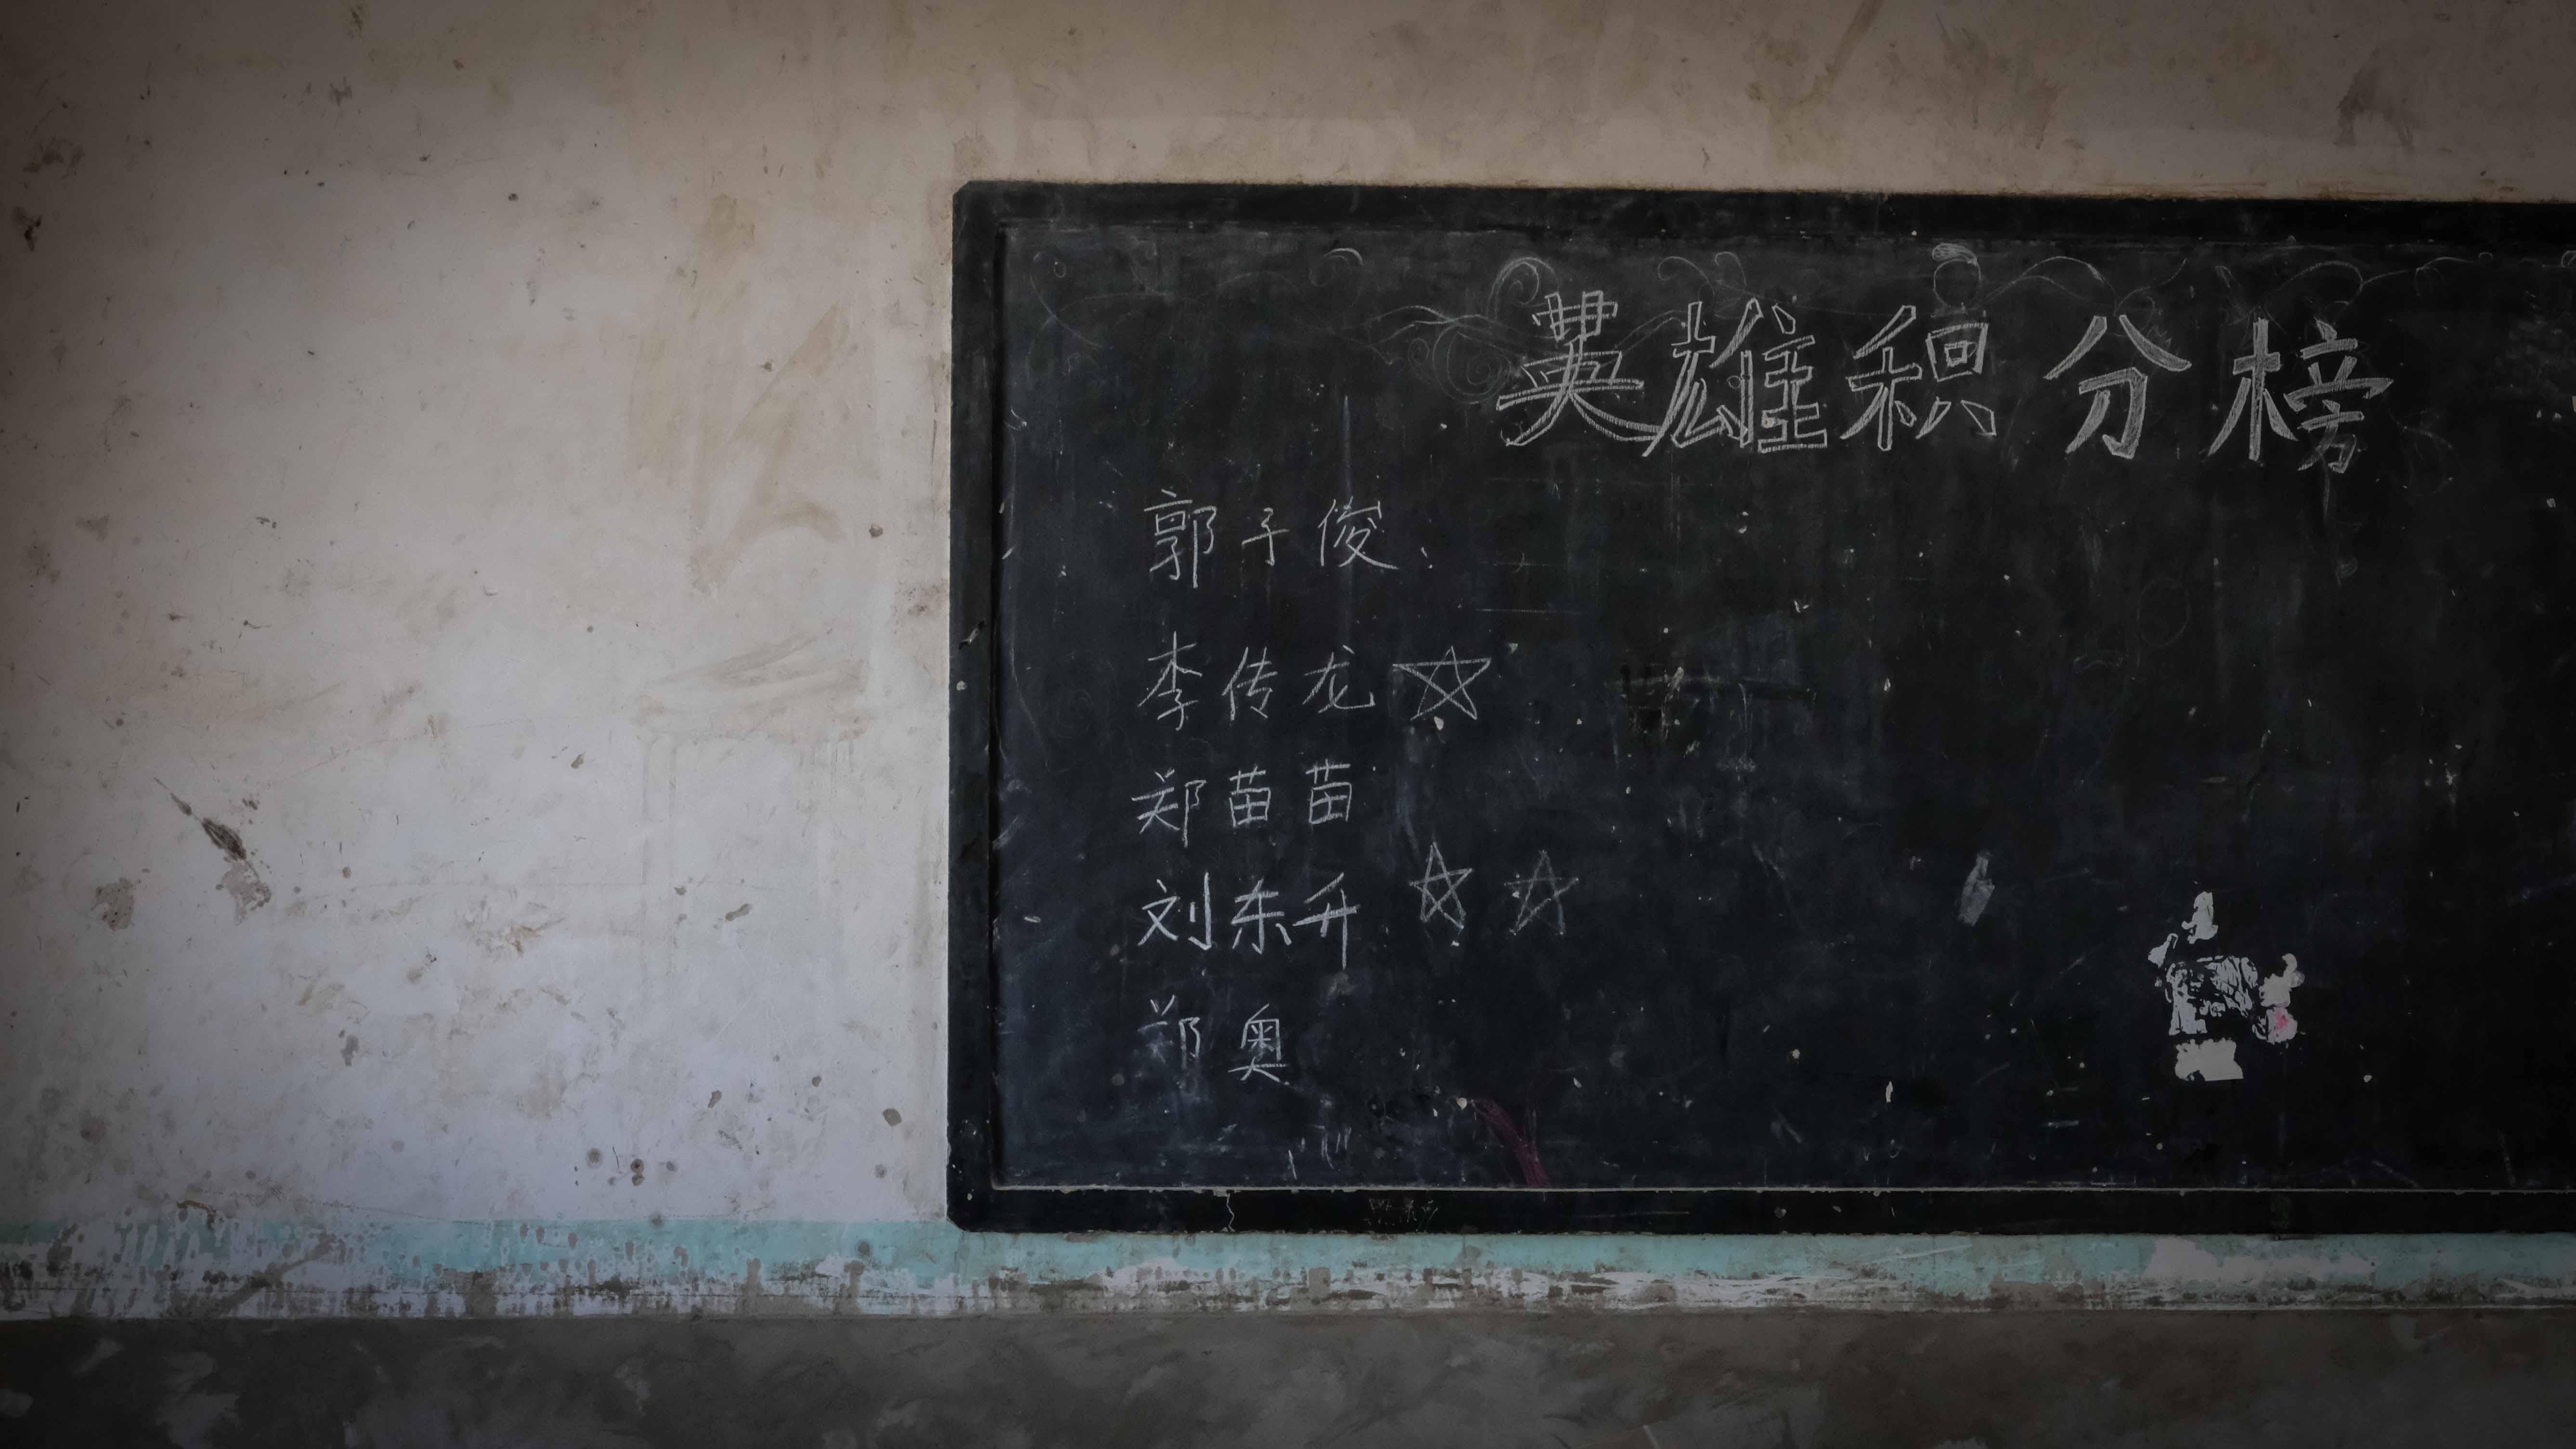 英雄积分榜
郭子俊
李传龙☆
郑苗苗
刘东升☆☆
郑奥